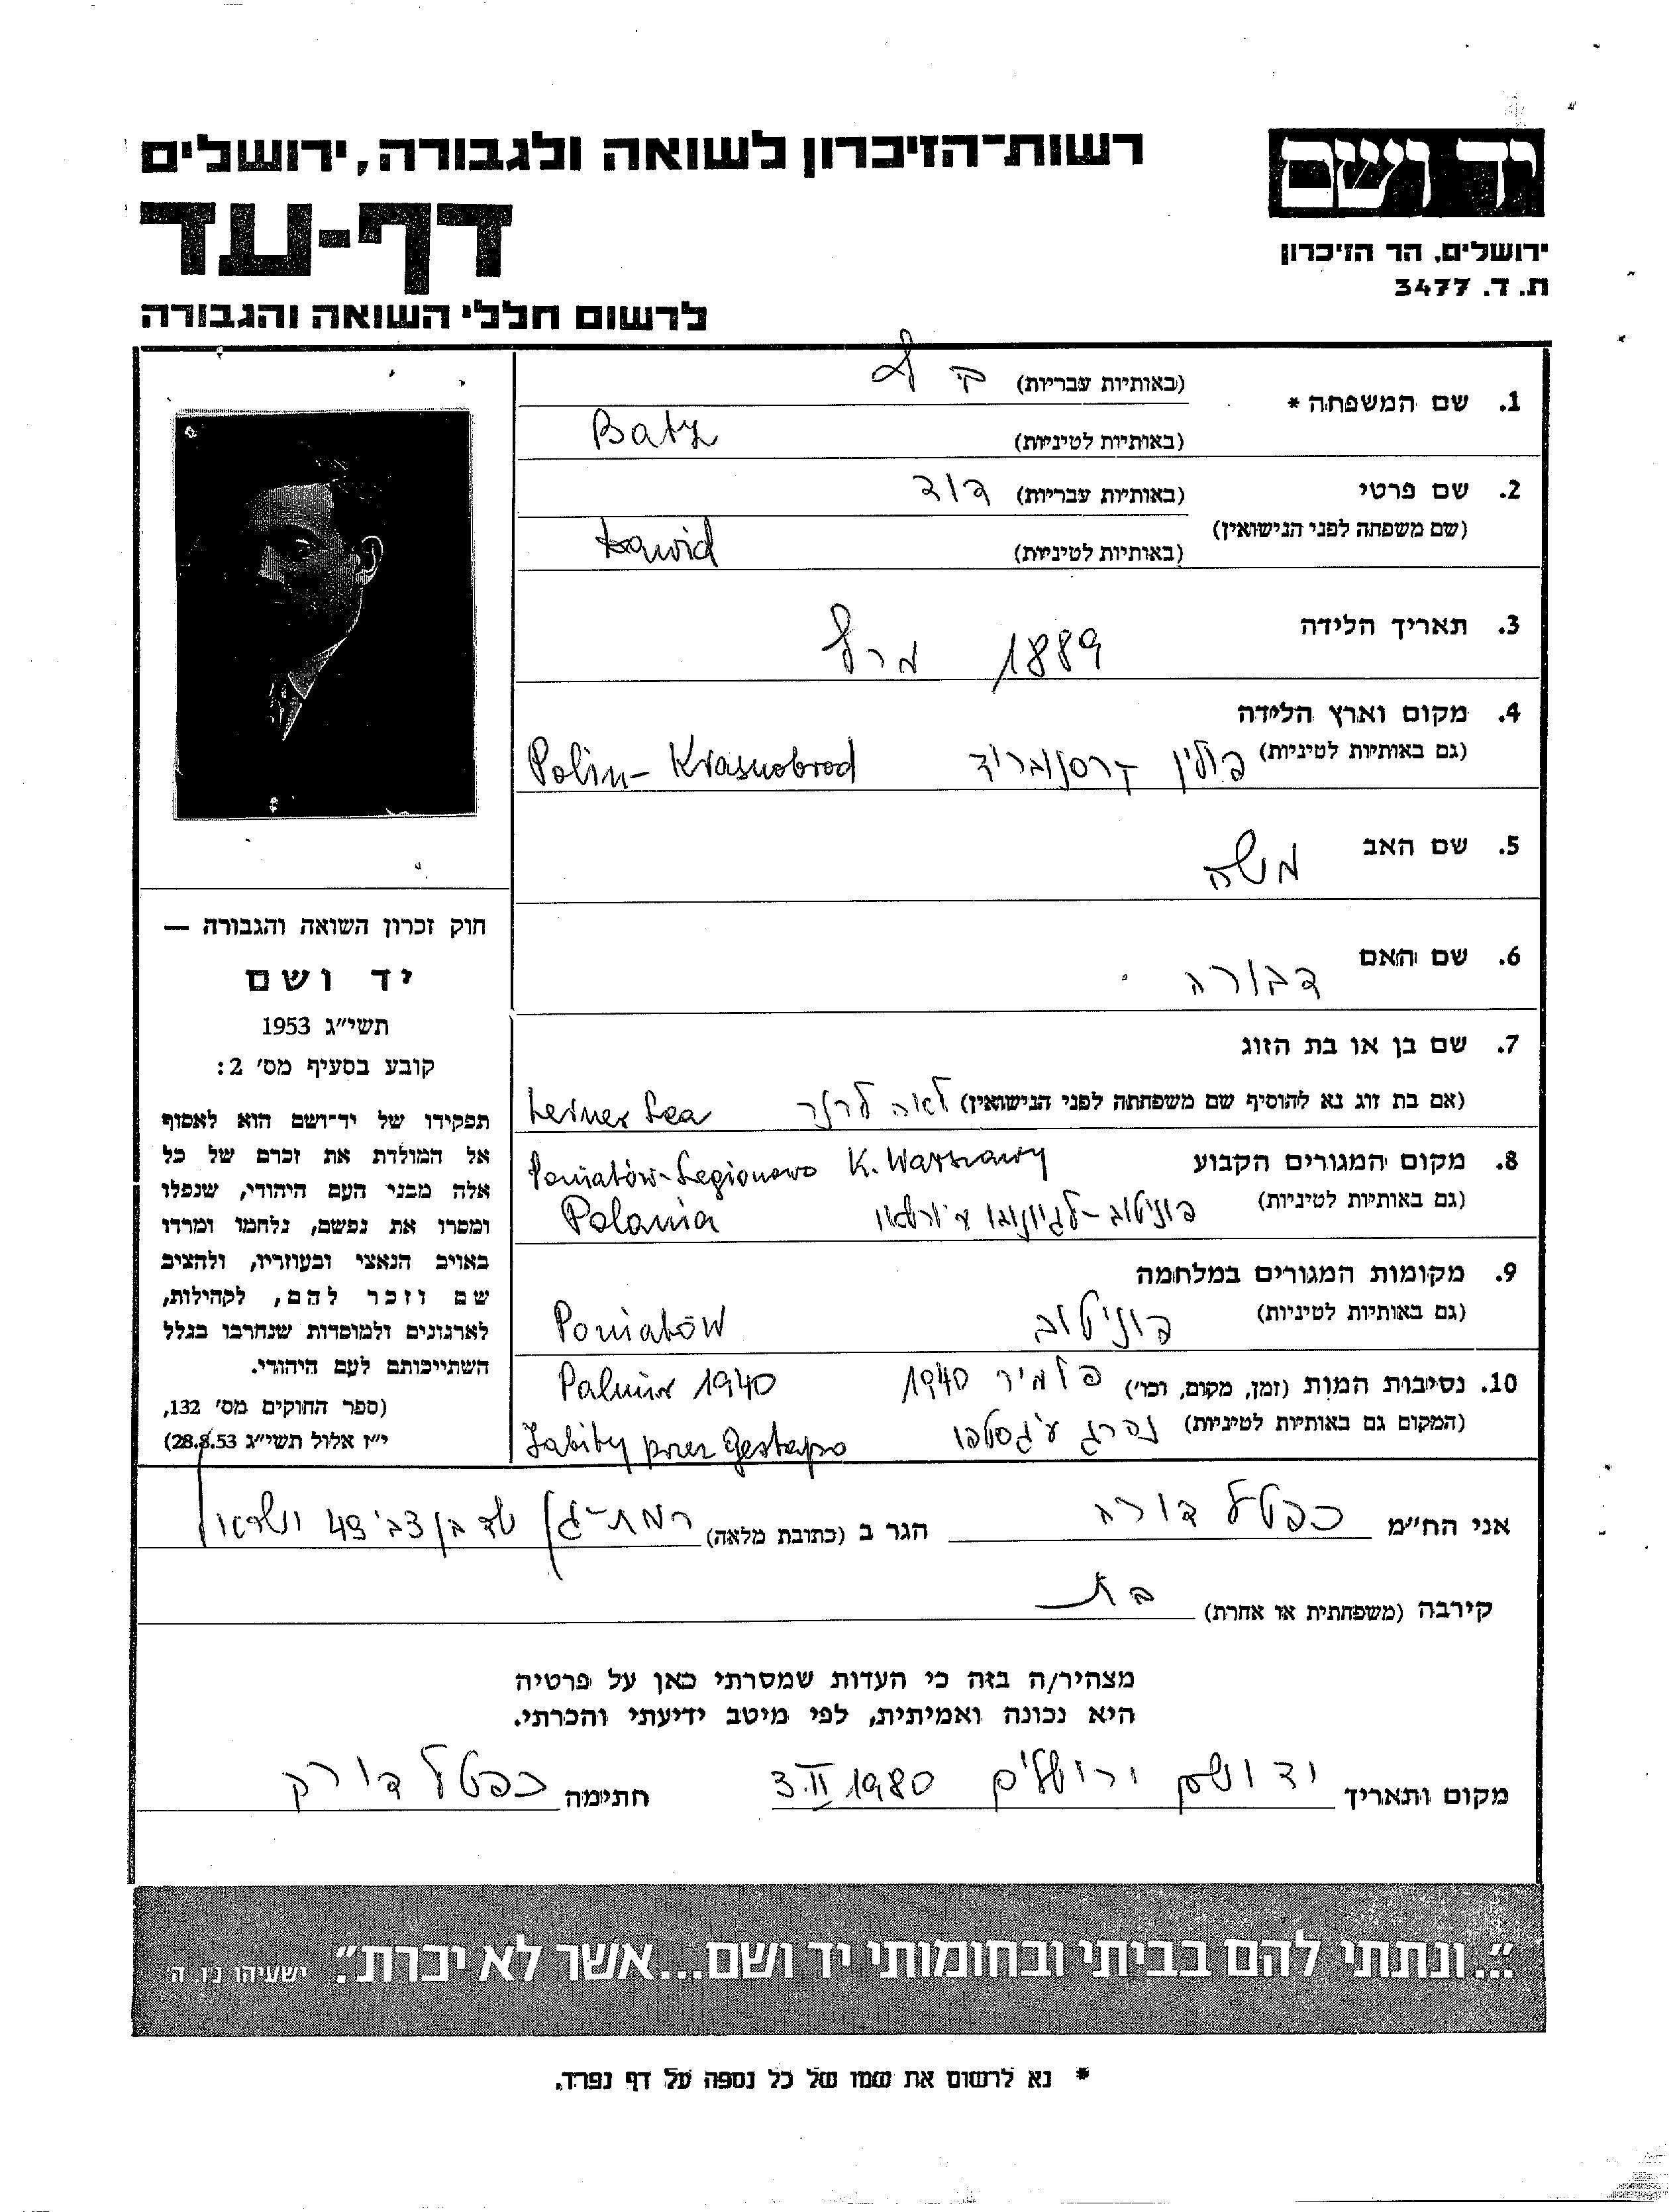 רשות־הזיכרון לשואה ולגבורה, ירושלים
דף-עד
לרשום חללי השואה והגבורה
יד ושם
ירושלים, הר הזיכרון
ת. ד. 3477
1. שם המשפחה *
(באותיות עבריות)
(באותיות לטיניות) Batz
2. שם פרטי (באותיות עבריות) דוד
(שם משפחה לפני הנישואין)
(באותיות לטיניות) Dawid
3. תאריך הלידה 1889 מרץ
4. מקום וארץ הלידה
(גם באותיות לטיניות) פולין קרסנוברוד Polin - Krasnobrod
5. שם האב משה
6. שם האם דבורה
7. שם בן או בת הזוג
(אם בת זוג נא להוסיף שם משפחתה לפני הנישואין) לאה לרנר Lerner Lea
8. מקום המגורים הקבוע Poniatów-Legionowo K. Warszawy
(גם באותיות לטיניות) פוניטוב-לגיונובו ע"י ורשאו Polania
9. מקומות המגורים במלחמה
(גם באותיות לטיניות) פוניטוב Poniatów
10. נסיבות המות (זמן, מקום, וכו') פלמיר 1940 Palmir 1940
(המקום גם באותיות לטיניות) נהרג ע"י גסטפו Zabity przez Gestapo
חוק זכרון השואה והגבורה —
יד ושם
תשי״ג 1953
קובע בסעיף מס׳ 2:
תפקידו של יד־ושם הוא לאסוף
אל המולדת את זכרם של כל
אלה מבני העם היהודי, שנפלו
ומסרו את נפשם, נלחמו ומרדו
באויב הנאצי ובעוזריו, ולהציב
שם וזכר להם, לקהילות,
לארגונים ולמוסדות שנחרבו בגלל
השתייכותם לעם היהודי.
(ספר החוקים מס׳ 132,
י״ז אלול תשי״ג 28.8.53)
אני הח״מ כפטל דורה הגר ב (כתובת מלאה) רמת-גן שד בן צבי 49
קירבה (משפחתית או אחרת) בת
מצהיר/ה בזה כי העדות שמסרתי כאן על פרטיה
היא נכונה ואמיתית, לפי מיטב ידיעתי והכרתי.
מקום ותאריך יד ושם ירושלים 3.II 1980 חתימה כפטל דורה
"...ונתתי להם בביתי ובחומותי יד ושם...אשר לא יכרת". ישעיהו נו, ה׳
* נא לרשום את שמו של כל נספה על דף נפרד.